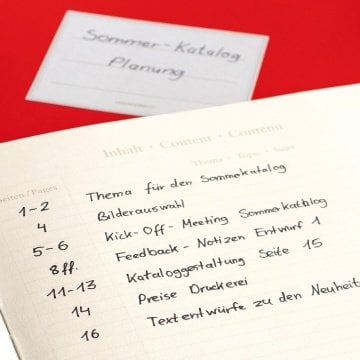 Sommer-Katalog
Planung
Inhalt · Content · Contenu
Thema · Topic · Sujet
Seiten/Pages
1-2 Thema für den Sommekatalog
4 Bilderauswahl
5-6 Kick-Off-Meeting Sommerkatalog
8ff. Feedback-Notizen Entwurf 1
11-13 Kataloggestaltung Seite 15
14 Preise Druckerei
16 Textentwürfe zu den Neuheite